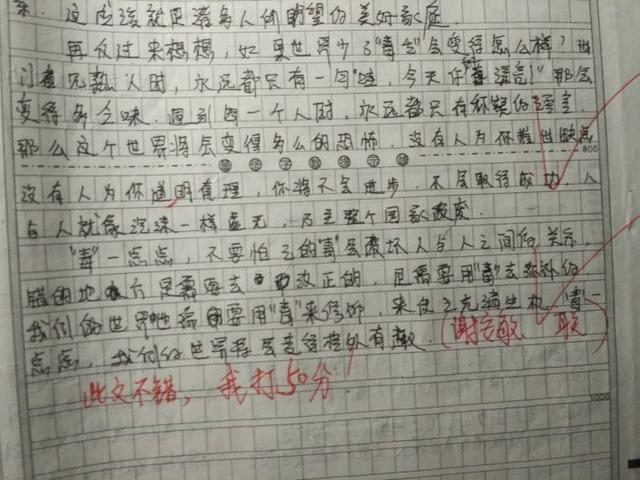 来．这应该就是诸多人们盼望的美好家庭
再反过来想想，如果世界少了"毒舌"会变得怎么样？出
门遇见熟人时，永远都只有一句"哇，今天你漂亮！"那会
变得多乏味．遇到每一个人时，永远都只有
那么这个世界将会变得多么的恐怖．没有人为你指出缺点
800
没有人为你道明真理，你将不会进步．不会取得成功．人
与人就像泡沫一样虚无，乃至整个国家
"毒"一点点，不要怕它的"毒"会破坏人与人之间的关系，
错的地方是需要去改正的，是需要用"毒"去弥补的．
我们的世界也需要用"毒"来修饰，来使之充满生机，"毒"一
点点，我们的世界将会变得格外有趣．(谢志敏 耿)
此文不错，我打50分
1000